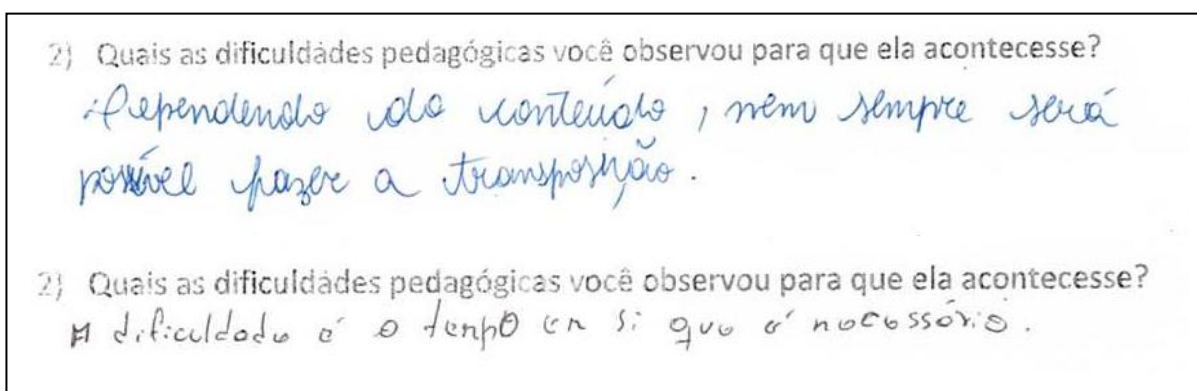 2) Quais as dificuldades pedagógicas você observou para que ela acontecesse?
Dependendo do conteúdo, nem sempre será
possível fazer a transposição.
2) Quais as dificuldades pedagógicas você observou para que ela acontecesse?
A dificuldade é o tempo em si que é necessário.